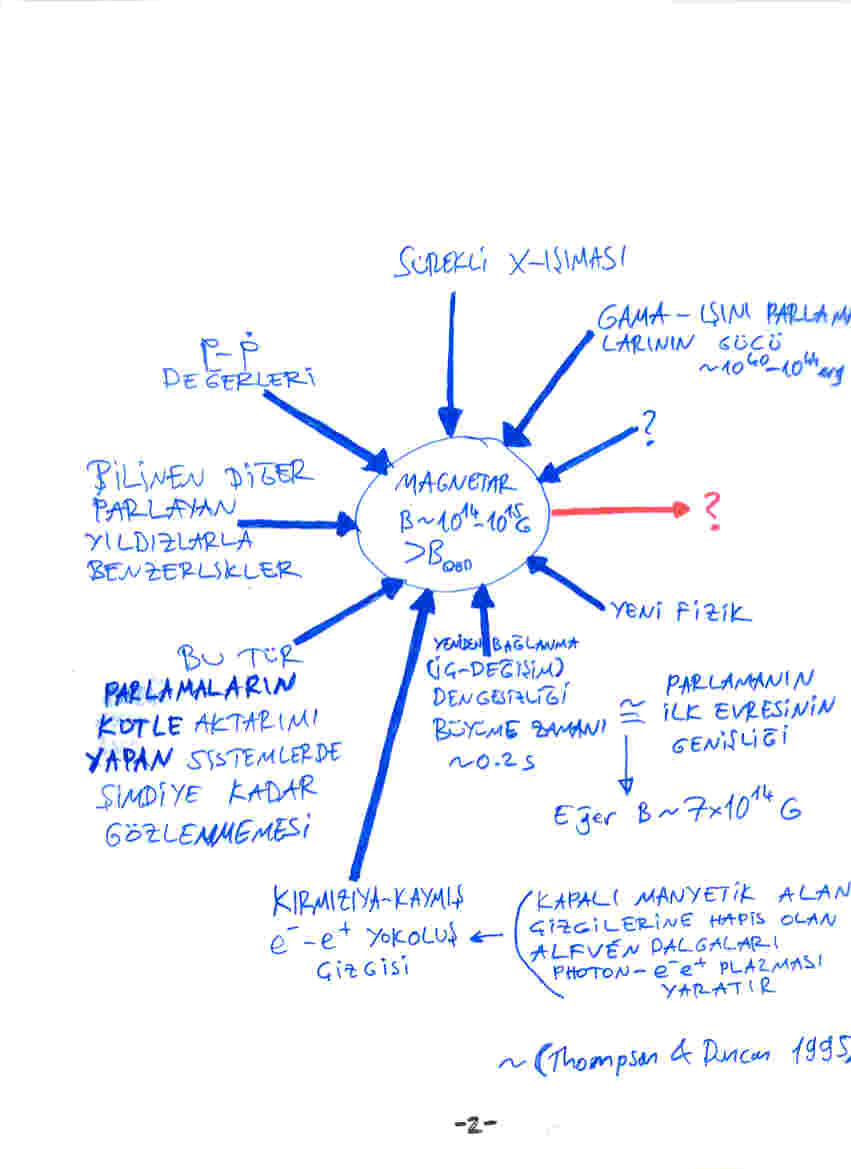 SÜREKLİ X-IŞIMASI
GAMA-IŞINI PARLAMA
LARININ GÜCÜ
~10⁴⁰-10⁴⁴ erg
P-Ṗ
DEĞERLERİ
?
BİLİNEN DİĞER
PARLAYAN
YILDIZLARLA
BENZERLİKLER
MAGNETAR
B~10¹⁴-10¹⁵G
>B_QED
?
YENİ FİZİK
BU TÜR
PARLAMALARIN
KÜTLE AKTARIMI
YAPAN SİSTEMLERDE
ŞİMDİYE KADAR
GÖZLENMEMESİ
YENİDEN BAĞLANMA
(İÇ-DEĞİŞİM)
DENGESİZLİĞİ
BÜYÜME ZAMANI
~0.2 s
≅
PARLAMANIN
İLK EVRESİNİN
GENİŞLİĞİ
Eğer B~7×10¹⁴ G
KIRMIZIYA-KAYMIŞ
e⁻-e⁺ YOKOLUŞ
ÇİZGİSİ
(KAPALI MANYETİK ALAN
ÇİZGİLERİNE HAPİS OLAN
ALFVÉN DALGALARI
PHOTON-e⁻e⁺ PLAZMASI
YARATIR
~(Thompson & Duncan 1995)
-2-